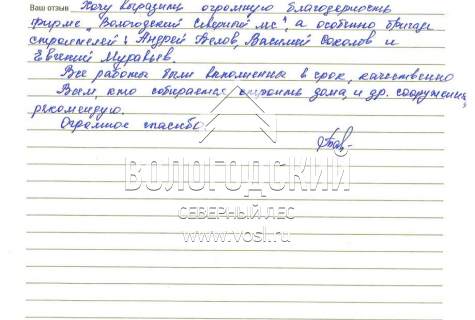 Ваш отзыв Хочу выразить огромную благодарность
фирме „Вологодский Северный лес", а особенно бригаде
строителей: Андрей Белов, Василий Соколов и
Евгений Муравьев.
Все работы были выполнены в срок, качественно
Всем, кто собирается строить дома, и др. сооружения,
рекомендую.
Огромное спасибо
ВОЛОГОДСКИЙ
СЕВЕРНЫЙ ЛЕС
www.vosl.ru